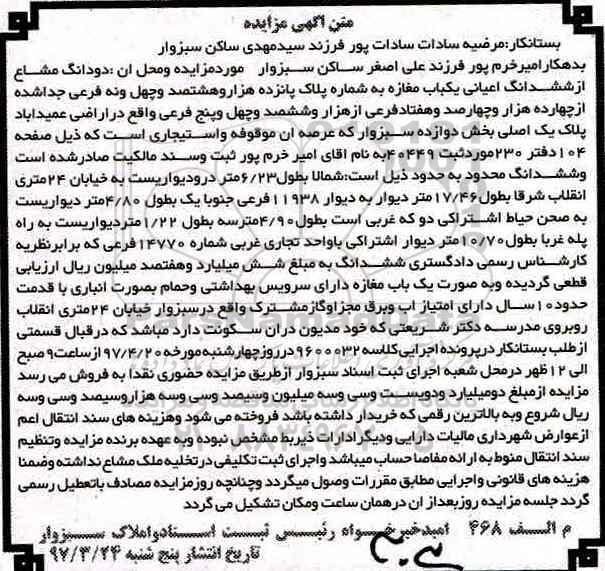 متن آگهی مزایده
بستانکار:مرضیه سادات سادات پور فرزند سیدمهدی ساکن سبزوار
بدهکارامیرخرم پور فرزند علی اصغر ساکن سبزوار موردمزایده ومحل ان :دودانگ مشاع
ازششدانگ اعیانی یکباب مغازه به شماره پلاک پانزده هزاروهشتصد وچهل ونه فرعی جداشده
ازچهارده هزار وچهارصد وهفتادفرعی ازهزار وششصد وچهل وپنج فرعی واقع دراراضی عمیداباد
پلاک یک اصلی بخش دوازده سبزوار که عرصه ان موقوفه واستیجاری است که ذیل صفحه
۱۰۴دفتر ۲۳۰موردثبت۴۰۴۴۹به نام اقای امیر خرم پور ثبت وسند مالکیت صادرشده است
وششدانگ محدود به حدود ذیل است:شمالا بطول۶/۲۳متر درودیواریست به خیابان ۲۴متری
انقلاب شرقا بطول۱۷/۴۶متر دیوار به دیوار ۱۱۹۳۸فرعی جنوبا یک بطول ۴/۸۰متر دیواریست
به صحن حیاط اشتراکی دو که غربی است بطول۴/۹۰مترسه بطول ۱/۲۲متردیواریست به راه
پله غربا بطول۱۰/۷۰متر دیوار اشتراکی باواحد تجاری غربی شماره ۱۴۷۷۰فرعی که برابرنظریه
کارشناس رسمی دادگستری ششدانگ به مبلغ شش میلیارد وهفتصد میلیون ریال ارزیابی
قطعی گردیده وبه صورت یک باب مغازه دارای سرویس بهداشتی وحمام بصورت انباری با قدمت
حدود۱۰سال دارای امتیاز اب وبرق مجزاوگازمشترک واقع درسبزوار خیابان ۲۴متری انقلاب
روبروی مدرسه دکتر شریعتی که خود مدیون دران سکونت دارد میباشد که درقبال قسمتی
ازطلب بستانکار درپرونده اجرایی کلاسه۹۶۰۰۰۳۲درروزچهارشنبه مورخه۹۷/۴/۲۰ازساعت۹صبح
الی ۱۲ظهر درمحل شعبه اجرای ثبت اسناد سبزوار ازطریق مزایده حضوری نقدا به فروش می رسد
مزایده ازمبلغ دومیلیارد ودویست وسی وسه میلیون وسیصد وسی وسه هزاروسیصد وسی وسه
ریال شروع وبه بالاترین رقمی که خریدار داشته باشد فروخته می شود وهزینه های سند انتقال اعم
ازعوارض شهرداری مالیات دارایی ودیگرادارات ذیربط مشخص نبوده وبه عهده برنده مزایده وتنظیم
سند انتقال منوط به ارائه مفاصاحساب میباشد واجرای ثبت تکلیفی درتخلیه ملک مشاع نداشته وضمنا
هزینه های قانونی واجرایی مطابق مقررات وصول میگردد وچنانچه روزمزایده مصادف باتعطیل رسمی
گردد جلسه مزایده روزبعداز ان درهمان ساعت ومکان تشکیل می گردد
م الف ۴۶۸ امیدخیرخواه رئیس ثبت اسنادواملاک سبزوار
تاریخ انتشار پنج شنبه ۹۷/۳/۲۴